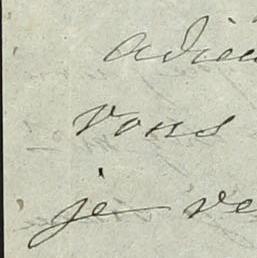 adieu
vous
je ve